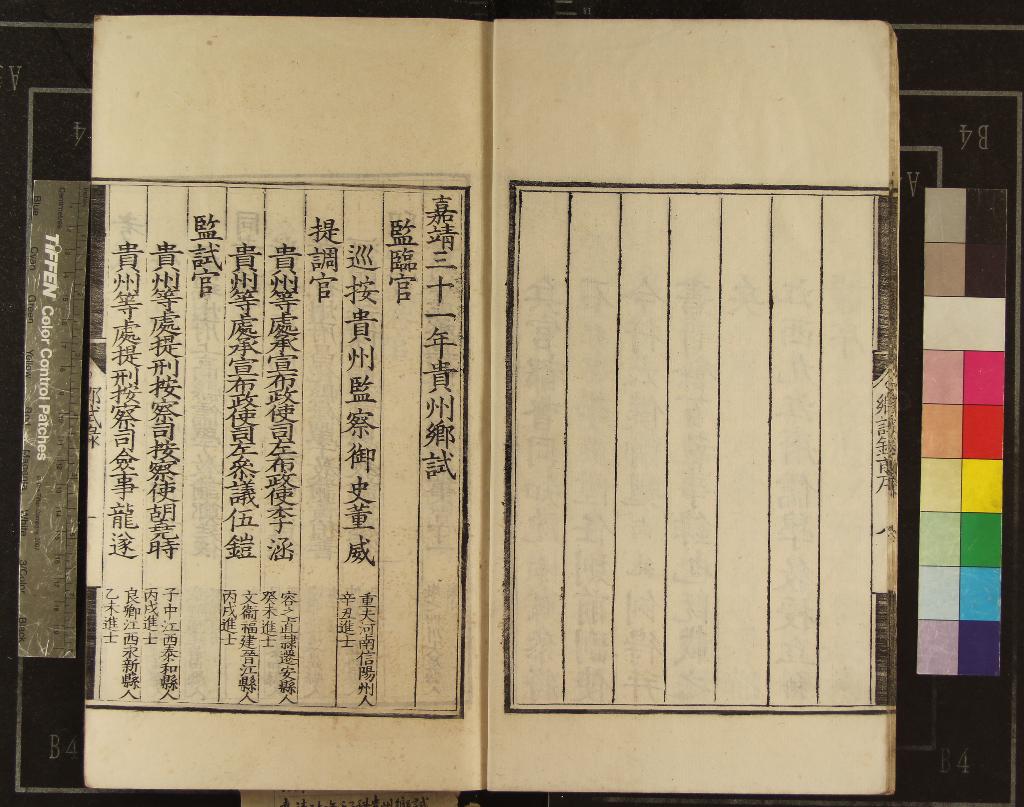 嘉靖三十一年貴州鄉試
監臨官
巡按貴州監察御史董威
重夫河南信陽州人
辛丑進士
提調官
貴州等處承宣布政使司左布政使李涵
容之直隸遷安縣人
癸未進士
貴州等處承宣布政使司左叅議伍鎧
文衛福建晉江縣人
丙戌進士
監試官
貴州等處提刑按察司按察使胡堯時
子中江西泰和縣人
丙戌進士
貴州等處提刑按察司僉事龍遂
良卿江西永新縣人
乙未進士
鄉試錄
一
鄉試錄前序
八
TIFFEN Color Control Patches
B4
B4
B4
B4
A3
A